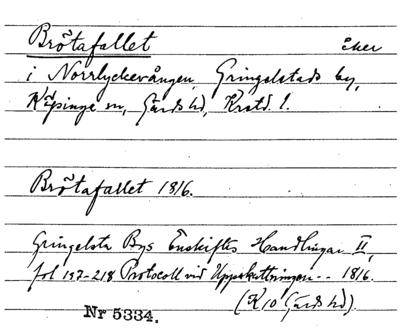 Brötafallet åker
i Norrlyckevången Gringelstads by,
Köpinge sn, Gärds hd, Krstd. l.
Brötafallet 1816.
Gringelsta Bys Enskiftes Handlingar II,
fol 197-218 Protocoll vid Uppskattningen -- 1816.
(K10 Gärds hd).
Nr 5334.